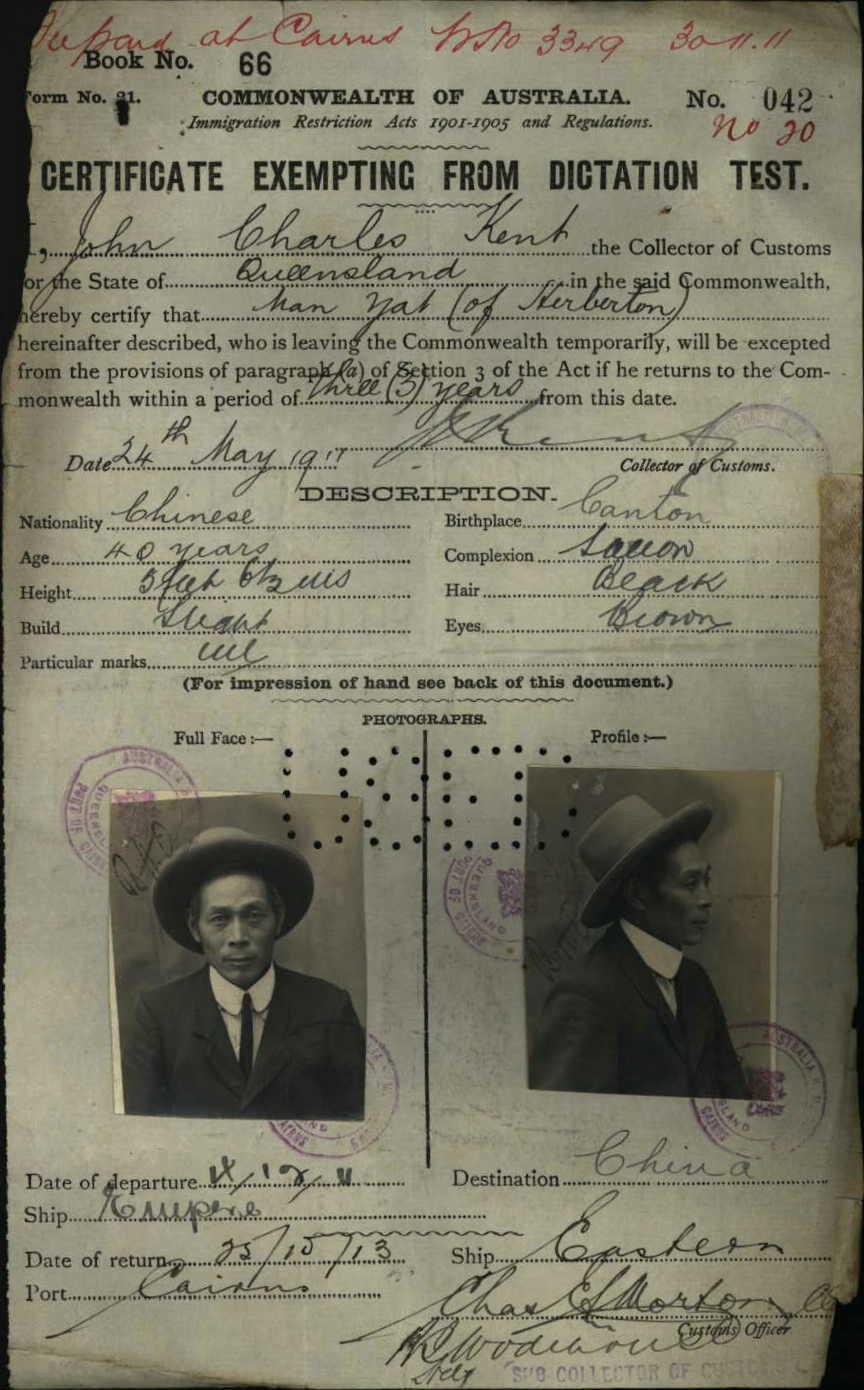 Prepared at Cairns 30.11.11
Book No. 66
Form No. 21. COMMONWEALTH OF AUSTRALIA. No. 042
Immigration Restriction Acts 1901-1905 and Regulations. No 20
CERTIFICATE EXEMPTING FROM DICTATION TEST.
I, John Charles Kent the Collector of Customs
for the State of Queensland in the said Commonwealth,
hereby certify that Man Yat (of Herberton)
hereinafter described, who is leaving the Commonwealth temporarily, will be excepted
from the provisions of paragraph (a) of Section 3 of the Act if he returns to the Com-
monwealth within a period of three (3) years from this date.
Date 24th May 1911
Collector of Customs.
DESCRIPTION.
Nationality Chinese Birthplace Canton
Age 40 years Complexion
Height Hair Black
Build Eyes Brown
Particular marks nil
(For impression of hand see back of this document.)
PHOTOGRAPHS.
Full Face :— Profile :—
AUSTRALIA
PORT OF
QUEENSLAND
CAIRNS
Date of departure Destination China
Ship Empire
Date of return Ship Eastern
Port Cairns
Chas Morton
Customs Officer
SUB-COLLECTOR OF CUSTOMS